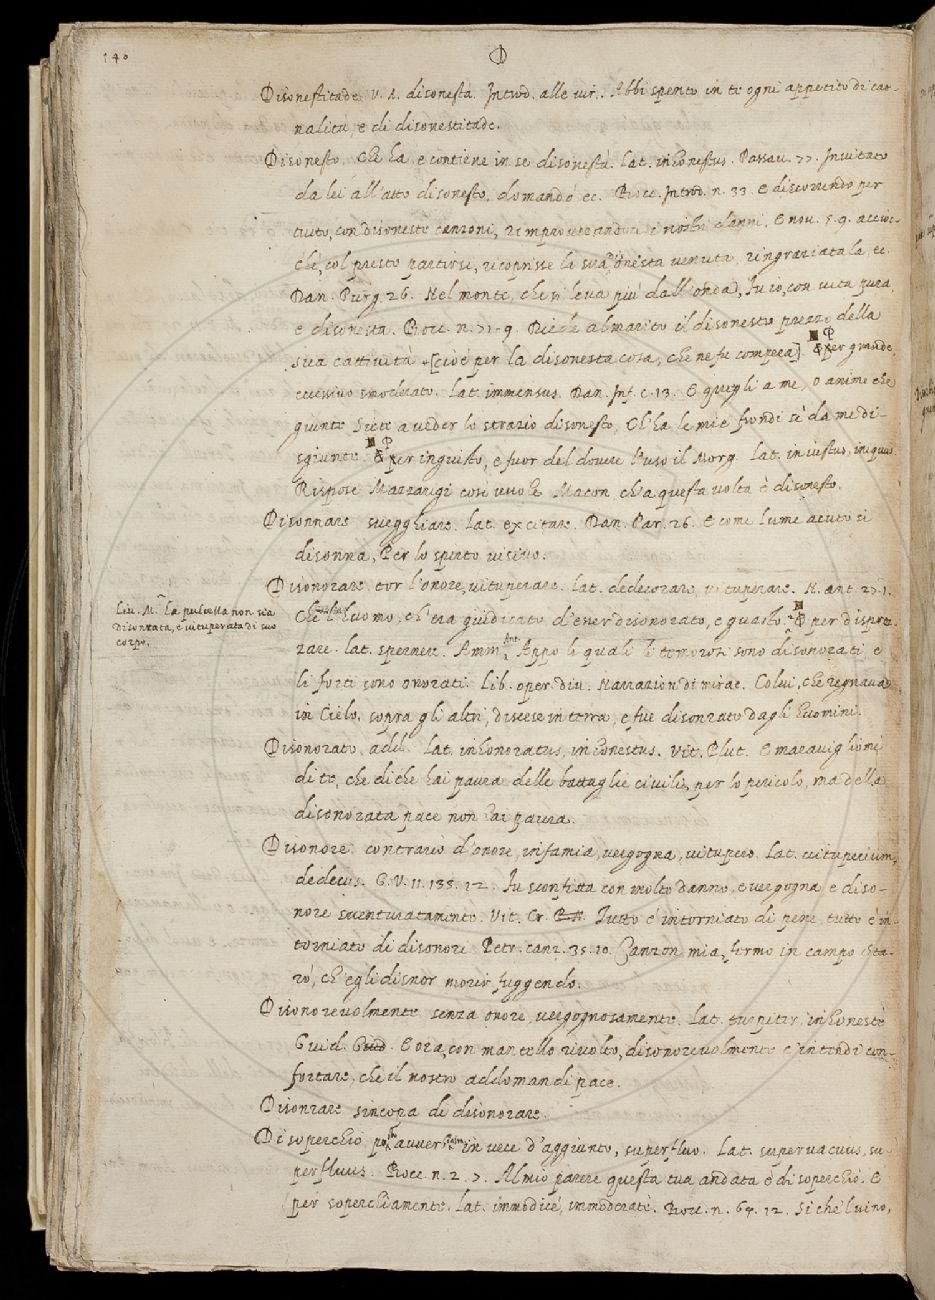 140
D
Disonestitade. V. A. disonestà. Introd. alle vir. Abbi spento in te ogni appetito di car-
nalità, e di disonestitade.
Disonesto. Che ha, e contiene in se disonestà. Lat. inhonestus. Passav. 77. Invitato
da lei all'atto disonesto, domandò ec. Bocc. Introd. n. 33. E discorrendo per
tutto, con disoneste canzoni, rimproverandoci i nostri danni. E nov. 5. 9. acciòc-
chè, col presto partirsi, ricoprisse la sua disonesta venuta, ringraziatala, ec.
Dan. Purg. 26. Nel monte, che si leva più dall'onda, Fu' io, con vita pura,
e disonesta. Bocc. n. 71. 9. Diede al marito il disonesto prezzo della
sua cattività [cioè per la disonesta cosa, che ne fu compera] per grande
eccessivo smoderato. Lat. immensus. Dan. Inf. c. 13. E quegli a me, o anime che
giunte Siete a veder lo strazio disonesto, Ch'ha le mie frondi sì da me di-
sgiunte. per ingiusto, e fuor del dovere l'usò il Morg. Lat. iniustus, iniquus.
Rispose Mazzarigi così vuole Macon ch'a questa volta è disonesto.
Disonnare svegghiare. Lat. excitare. Dan. Par. 26. E come lume acuto si
disonna, Per lo spirto visivo.
Disonorare tor l'onore, vituperare. Lat. dedecorare, vituperare. N. ant. 27. 1.
Che l'huomo, ch'era giudicato d'esser disonorato, e guasto. per disprez-
zare. Lat. spernere. Amm. Ant. Appo li quali li temorosi sono disonorati e
li forti sono onorati. Lib. oper. div. Narrazion di mirac. Colui, che regnava
in Cielo, sopra gli altri, discese in terra, e fue disonrato dagli huomini.
Liv. M. La pulcella non sia
disonrata, e vituperata di suo
corpo.
Disonorato. add. Lat. inhonoratus, inhonestus. Vit. Plut. E maravigliomi
di te, che di che hai paura delle battaglie civili, per lo pericolo, ma della
disonorata pace non hai paura.
Disonore. contrario d'onore, infamia, vergogna, vitupero. Lat. vituperium,
dedecus. G. V. 11. 135. 12. Fu sconfitta con molto danno, e vergogna e diso-
nore sventuratamente. Vit. Cr. Tutto è intorniato di pene, tutto è in-
torniato di disonori. Petr. canz. 35. 10. Canzon mia, fermo in campo sta-
rò, ch'egli è disnor morir fuggendo.
Disonorevolmente senza onore, vergognosamente. Lat. turpiter, inhoneste
Guid. G. E ora, con mantello rivolto, disonorevolmente c'intendi con-
fortare, che il nostro addomandi pace.
Disonrare sincopa di disonorare.
Di soperchio posto avverbialm. in vece d'aggiunto, superfluo. Lat. supervacuus, su-
perfluus. Bocc. n. 2. 7. Al mio parere questa tua andata è di soperchio. E
per soperchiamente. Lat. immodicè, immoderatè. Bocc. n. 64. 12. Sì che 'l vino,